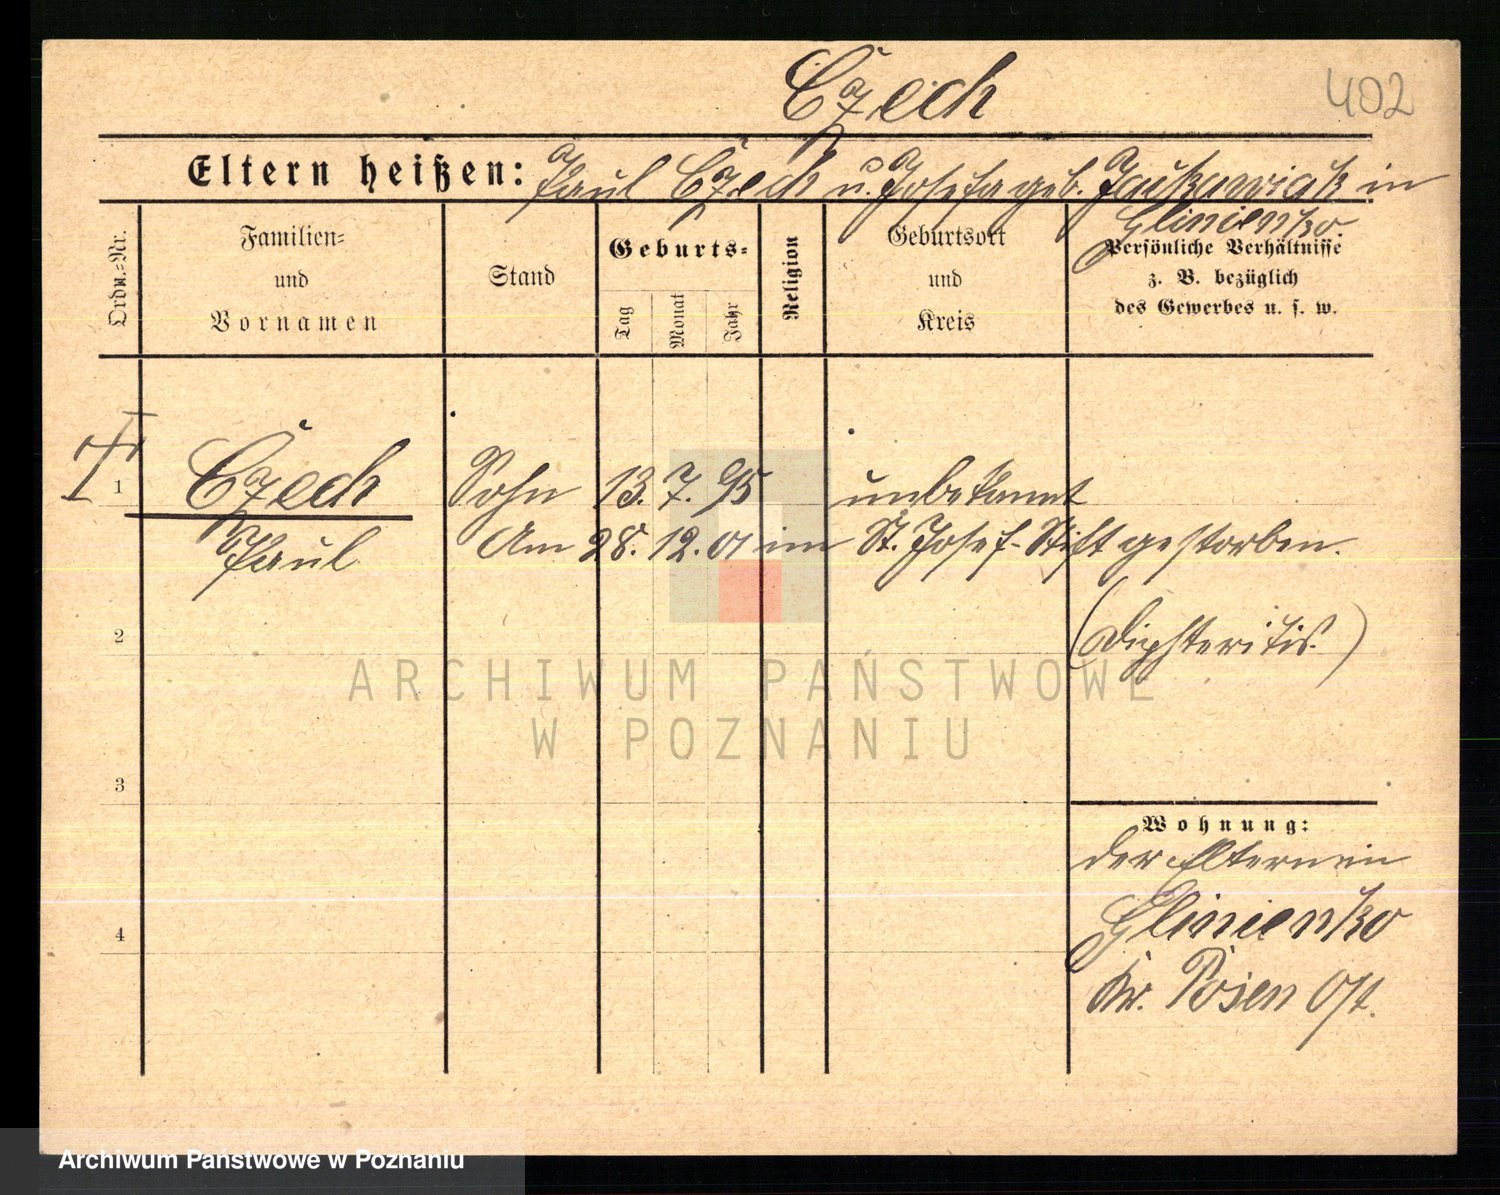 Czech
402
Eltern heißen: Paul Czech u. Josefa geb. Jaskowiak in
Glinienko.
Ordn.=Nr.
Familien=
und
Vornamen
Stand
Geburts=
Tag
Monat
Jahr
Religion
Geburtsort
und
Kreis
Persönliche Verhältnisse
z. B. bezüglich
des Gewerbes u. s. w.
1 Czech Sohn 13. 7. 95 unbekannt
Paul Am 28. 12. 01 im St. Josef-Stift gestorben.
2
(Diphteritis.)
ARCHIWUM PAŃSTWOWE
W POZNANIU
3
Wohnung:
der Eltern in
4
Glinienko
Kr. Posen Ost.
Archiwum Państwowe w Poznaniu